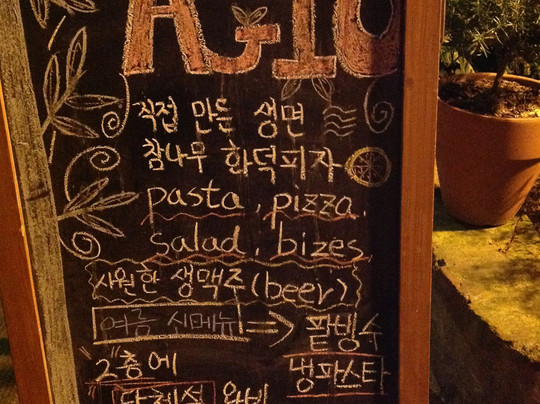 AGIO
직접 만든 생면
참나무 화덕피자
pasta, pizza,
salad, bizes
시원한 생맥주(beer)
여름 신메뉴 => 팥빙수
2층에 냉파스타
단체석 완비